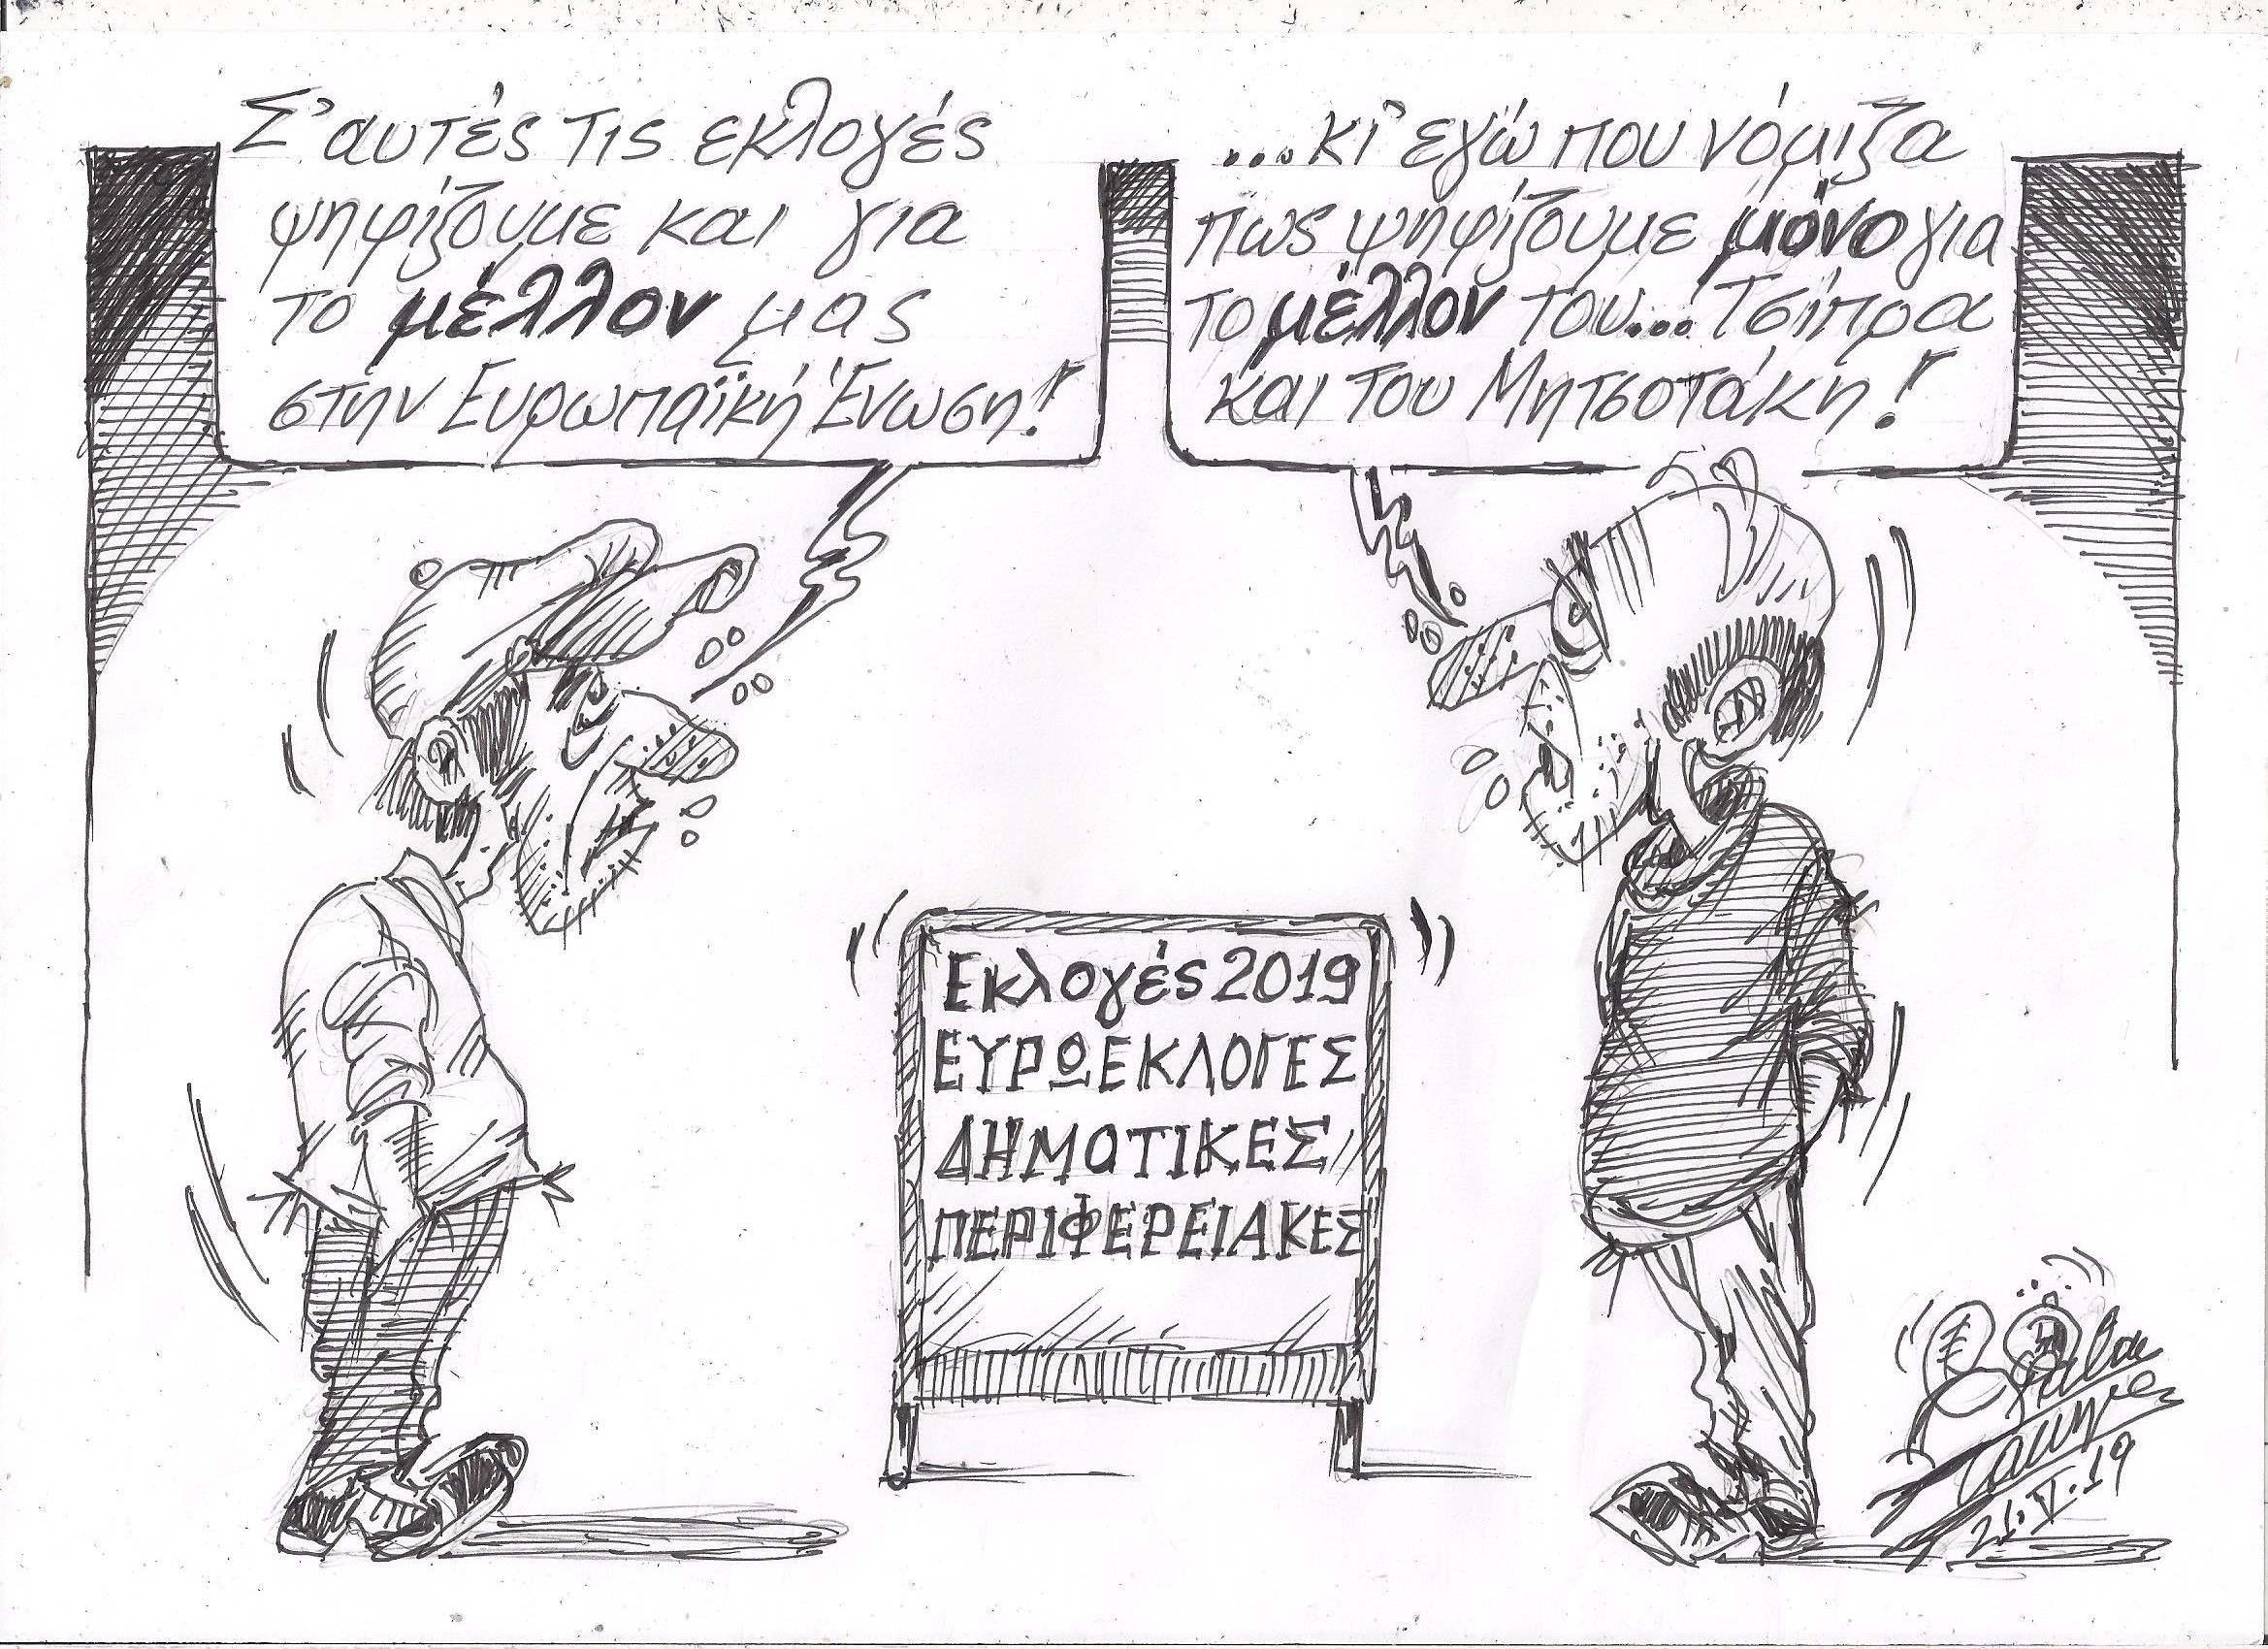 Σ' αυτές τις εκλογές
ψηφίζουμε και για
το μέλλον μας
στην Ευρωπαϊκή Ένωση!
...κι' εγώ που νόμιζα
πως ψηφίζουμε μόνο για
το μέλλον του... Τσίπρα
και του Μητσοτάκη!
Εκλογές 2019
ΕΥΡΩΕΚΛΟΓΕΣ
ΔΗΜΟΤΙΚΕΣ
ΠΕΡΙΦΕΡΕΙΑΚΕΣ
21.V.19